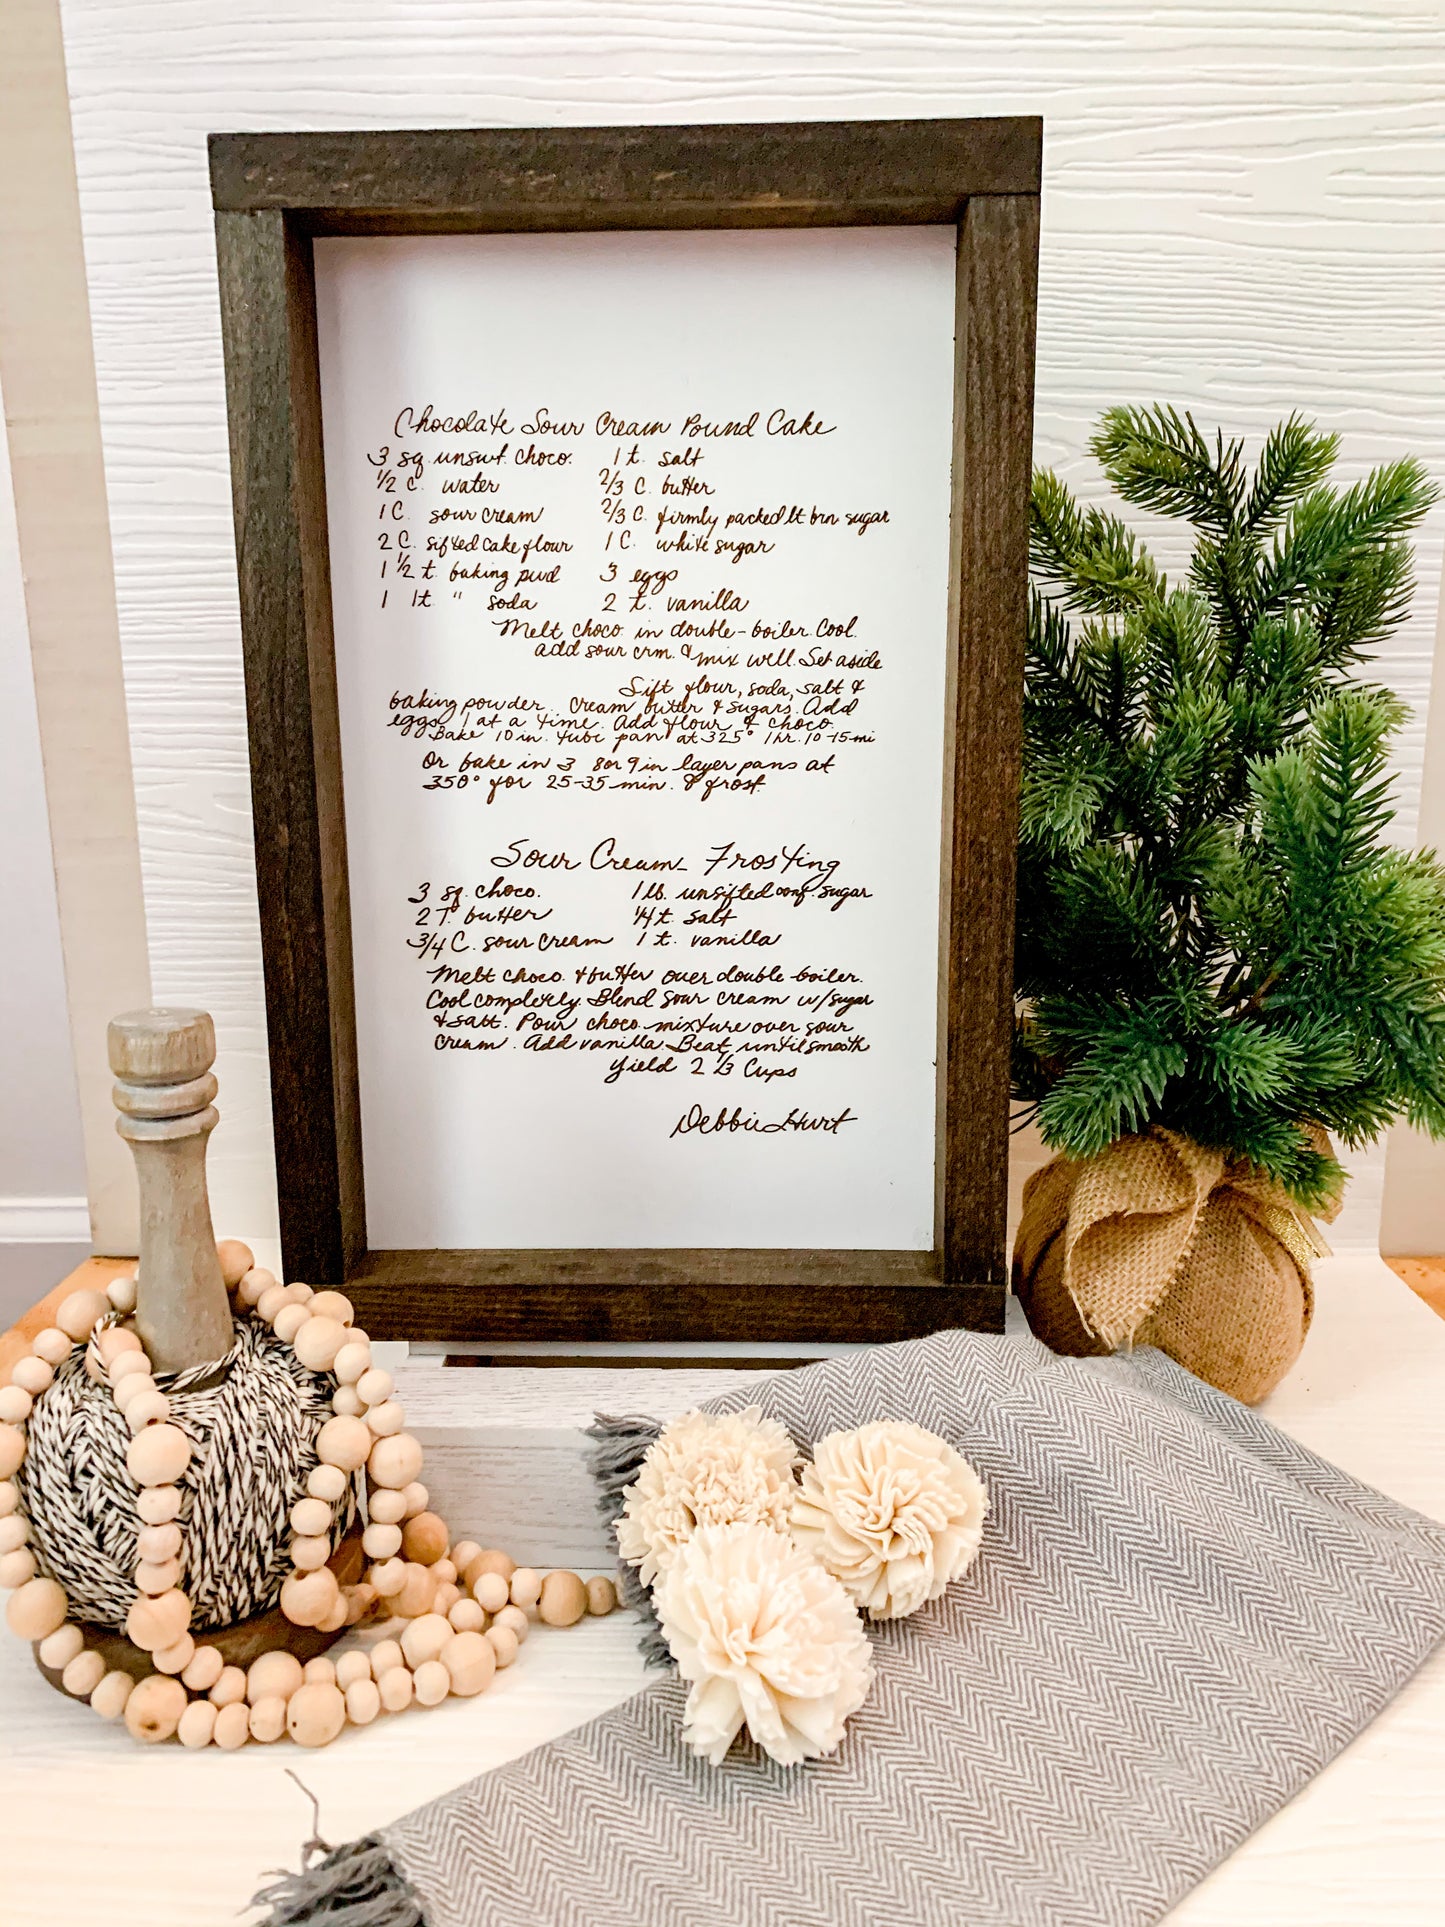 Chocolate Sour Cream Pound Cake
3 sq. unswt. choco. 1 t. salt
1/2 c. water 2/3 C. butter
1 C. sour cream 2/3 C. firmly packed lt brn sugar
2 C. sifted cake flour 1 C. white sugar
1 1/2 t. baking pwd 3 eggs
1 1t. " soda 2 t. vanilla
Melt choco. in double-boiler. Cool.
add sour crm. & mix well. Set aside
Sift flour, soda, salt &
baking powder. Cream butter & sugars. Add
eggs 1 at a time. Add flour & choco.
Bake 10 in. tube pan at 325° 1 hr. 10-15 mi
Or bake in 3 8 or 9 in layer pans at
350° for 25-35 min. & frost.
Sour Cream Frosting
3 sq. choco. 1 lb. unsifted conf. sugar
2 T. butter 1/4 t. salt
3/4 C. sour cream 1 t. vanilla
Melt choco. & butter over double-boiler.
Cool completely. Blend sour cream w/sugar
& salt. Pour choco. mixture over sour
cream. Add vanilla. Beat until smooth
Yield 2 1/3 Cups
Debbie Hurt